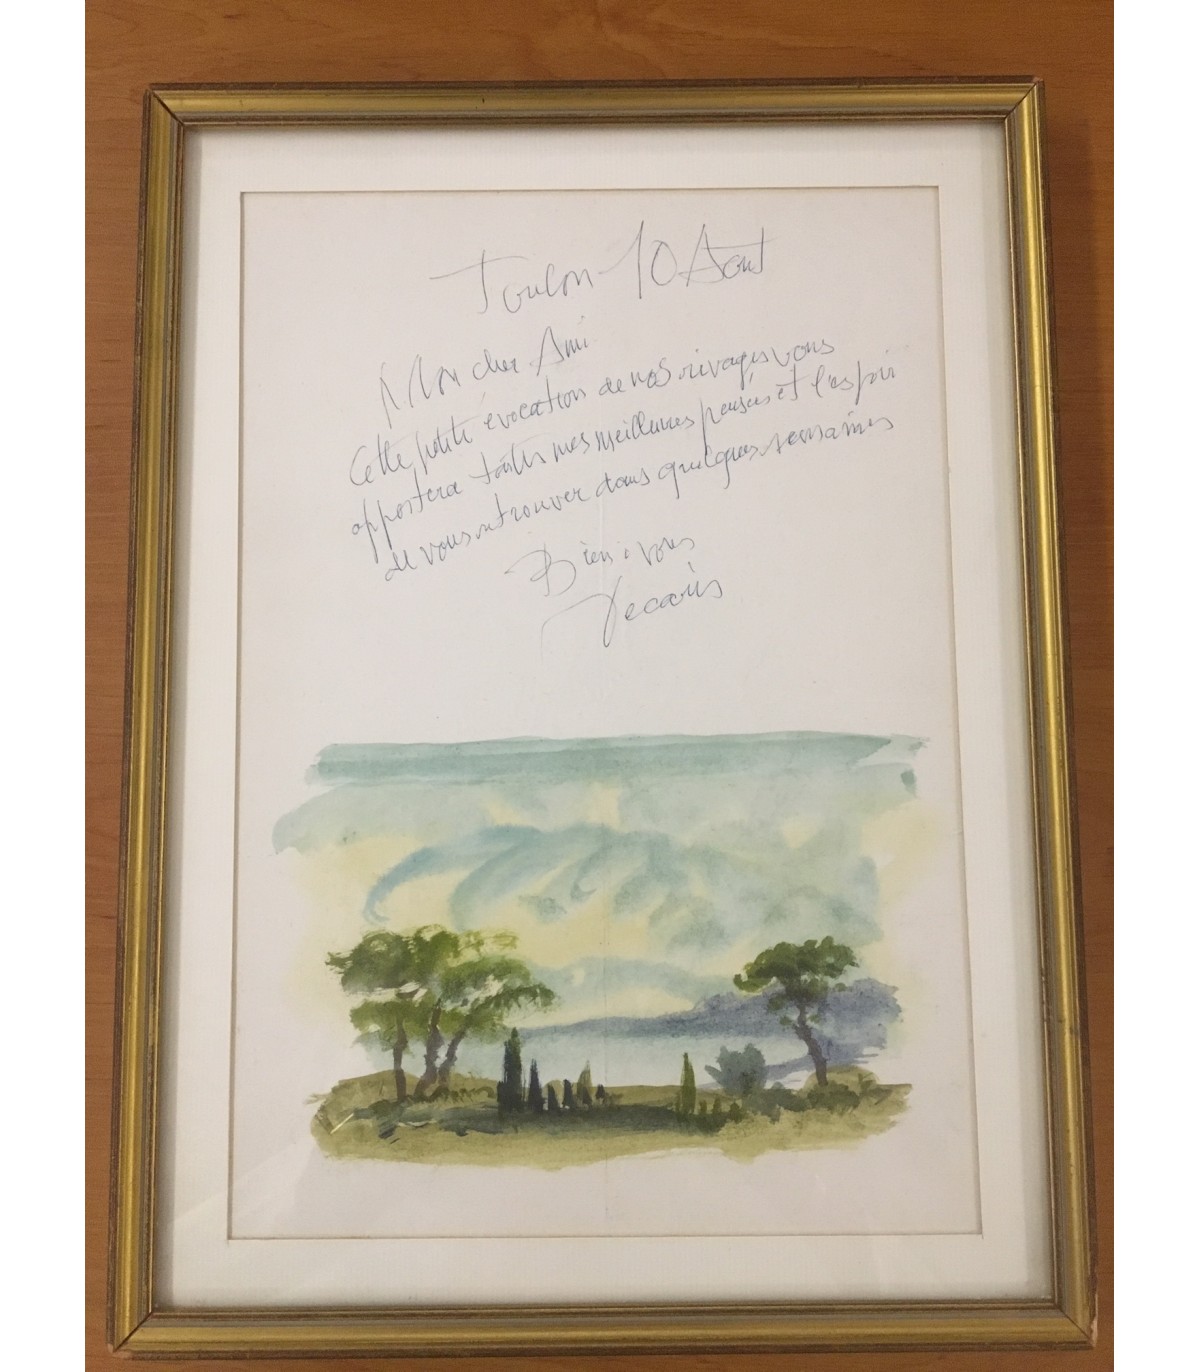 Toulon 10 Août
Mon cher Ami
Cette petite évocation de nos rivages vous
apportera toutes mes meilleures pensées et l'espoir
de vous retrouver dans quelques semaines
Bien à vous
Decaris